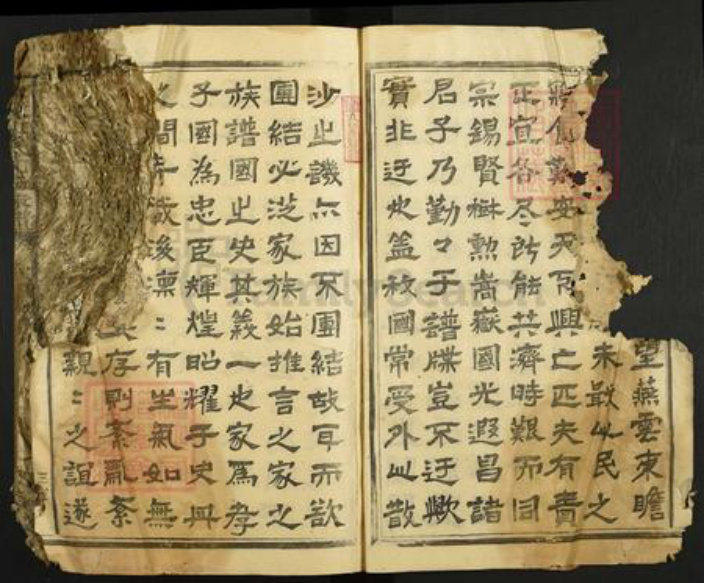 望燕雲東瞻
未敢以民之
安天下興亡匹夫有責
正宜各尽所能共濟時艱而同
宗錫賢樹勲嵩嶽國光遐昌諸
君子乃勤々于譜牒豈不迂歟
實非迂也盖我國常受外山散
沙之譏亦因不團結故耳而欲
團結必從家族始推言之家之
族譜國之史其義一也家爲孝
子國為忠臣輝煌昭耀于史冊
之間千載後凛〻有生氣如無
存則紊亂紊
親〻之誼遂